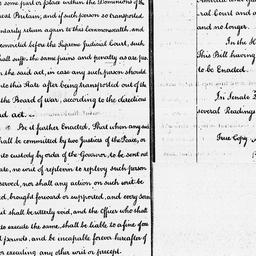 some part or place within the Dominions of the
Great Britain, and if such person so transported
untarily return again to this Commonwealth, and
convicted before the Supreme Judicial Court, such
all suffer the same pains and penalty as are pre
the said act, in case any such person should
into this State after being transported out of the
the Board of war, according to the directions
aid act.
Be it further Enacted, That when any such
shall be committed by two Justices of the Peace, or
to custody by order of the Governor, to be sent out
ate, no writ of replevin to replevy such person
served, nor shall any action on such writ be
d, brought forward or supported, and every Such
it shall be utterly void, and the Officer who shall
to execute the same, shall be liable to a fine of one
d pounds, and be incapable forever hereafter of
or executing any other writ or precept.
ral Court and a
and no longer.
In the H
This Bill having
to be Enacted.
In Senate
several Readings
True Copy